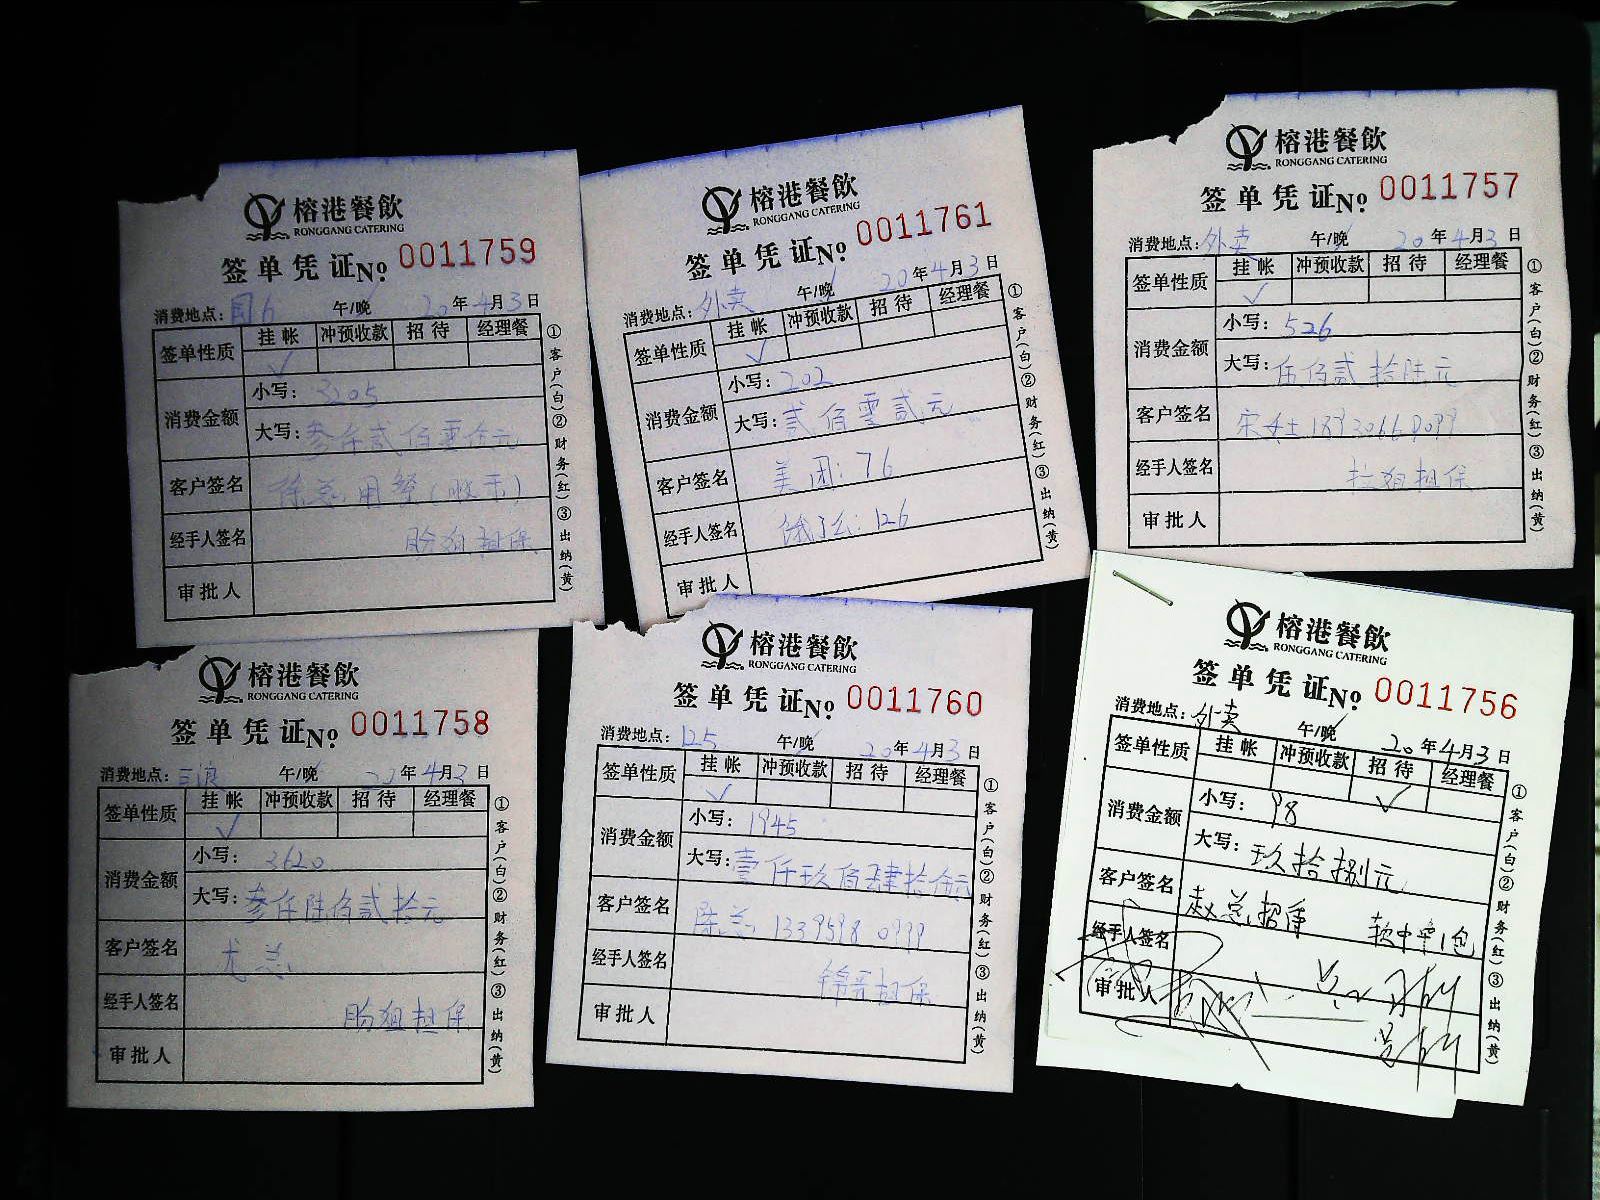 榕港餐飲
RONGGANG CATERING
签单凭证No 0011759
消费地点: 午/晚 20年4月3日
签单性质 挂帐 冲预收款 招待 经理餐
✓
消费金额 小写: 3205
大写: 叁仟贰佰零伍元
客户签名 徐总用餐
经手人签名 盼姐担保
审批人
①客户(白)②财务(红)③出纳(黄)
榕港餐飲
RONGGANG CATERING
签单凭证No 0011761
消费地点: 外卖 午/晚 20年4月3日
签单性质 挂帐 冲预收款 招待 经理餐
✓
消费金额 小写: 202
大写: 贰佰零贰元
客户签名 美团: 76
经手人签名 饿了么: 126
审批人
①客户(白)②财务(红)③出纳(黄)
榕港餐飲
RONGGANG CATERING
签单凭证No 0011757
消费地点: 外卖 午/晚 20年4月3日
签单性质 挂帐 冲预收款 招待 经理餐
✓
消费金额 小写: 526
大写: 伍佰贰拾陆元
客户签名 宋女士
经手人签名 担保
审批人
①客户(白)②财务(红)③出纳(黄)
榕港餐飲
RONGGANG CATERING
签单凭证No 0011758
消费地点: 午/晚 20年4月3日
签单性质 挂帐 冲预收款 招待 经理餐
✓
消费金额 小写: 3620
大写: 叁仟陆佰贰拾元
客户签名 尤总
经手人签名 盼姐担保
审批人
①客户(白)②财务(红)③出纳(黄)
榕港餐飲
RONGGANG CATERING
签单凭证No 0011760
消费地点: 125 午/晚 20年4月3日
签单性质 挂帐 冲预收款 招待 经理餐
✓
消费金额 小写: 1945
大写: 壹仟玖佰肆拾伍元
客户签名 陈总 13395980999
经手人签名 锦哥担保
审批人
①客户(白)②财务(红)③出纳(黄)
榕港餐飲
RONGGANG CATERING
签单凭证No 0011756
消费地点: 外卖 午/晚 20年4月3日
签单性质 挂帐 冲预收款 招待 经理餐
✓
消费金额 小写: 98
大写: 玖拾捌元
客户签名 赵总招待 软中华1包
经手人签名
审批人
①客户(白)②财务(红)③出纳(黄)